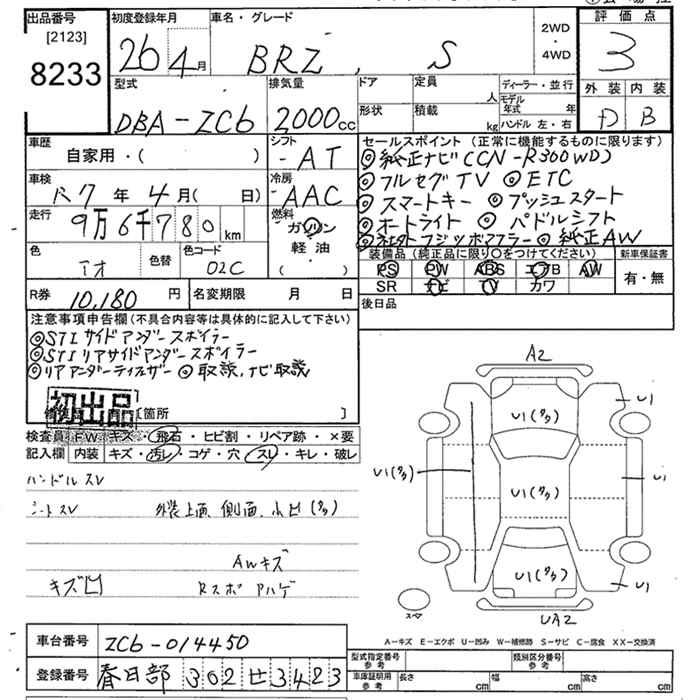 出品番号
[2123]
8233
初度登録年月
26 4月
車名・グレード
BRZ, S
2WD
・
4WD
評価点
3
型式
DBA-ZC6
排気量
2000cc
ドア
定員
人
形状
積載
kg
ディーラー・並行
モデル年式 年
ハンドル 左・右
外装 内装
D B
車歴
自家用・( )
シフト
-AT
車検
R7 年 4月( 日)
冷房
AAC
走行
9万6千780km
燃料
ガソリン
軽油
( ・ )
色
アオ
色替
色コード
02C
R券 10,180 円
名変期限 月 日
セールスポイント (正常に機能するものに限ります)
◎純正ナビ(CCN-R300WD)
◎フルセグTV ◎ETC
◎スマートキー ◎プッシュスタート
◎オートライト ◎パドルシフト
フジツボマフラー ◎純正AW
装備品 (純正品に限り○をつけてください)
新車保証書
PS PW ABS エアB AW
SR ナビ TV カワ
有・無
後日品
注意事項申告欄 (不具合内容等は具体的に記入して下さい)
◎STIサイドアンダースポイラー
◎STIリアサイドアンダースポイラー
◎リアアンダーディフューザー ◎取説,ナビ取説
初出品
[箇所 ]
検査員記入欄
FW キズ・飛石・ヒビ割・リペア跡・×要
内装 キズ・汚レ・コゲ・穴・スレ・キレ・破レ
ハンドルスレ
シートスレ 外装上面、側面、小ヒ(タタ)
AWキズ
キズ凹 Rスポハゲ
A2
U1
U1(タタ)
U1(タタ)
U1(タタ)
U1
U1(タタ)
U1
スペア
UA2
A-キズ E-エクボ U-凹み W-補修跡 S-サビ C-腐食 XX-交換済
車台番号 ZC6-014450
登録番号 春日部 302 せ 3423
型式指定番号 参考
類別区分番号 参考
車庫証明用 参考
長さ cm
幅 cm
高さ cm